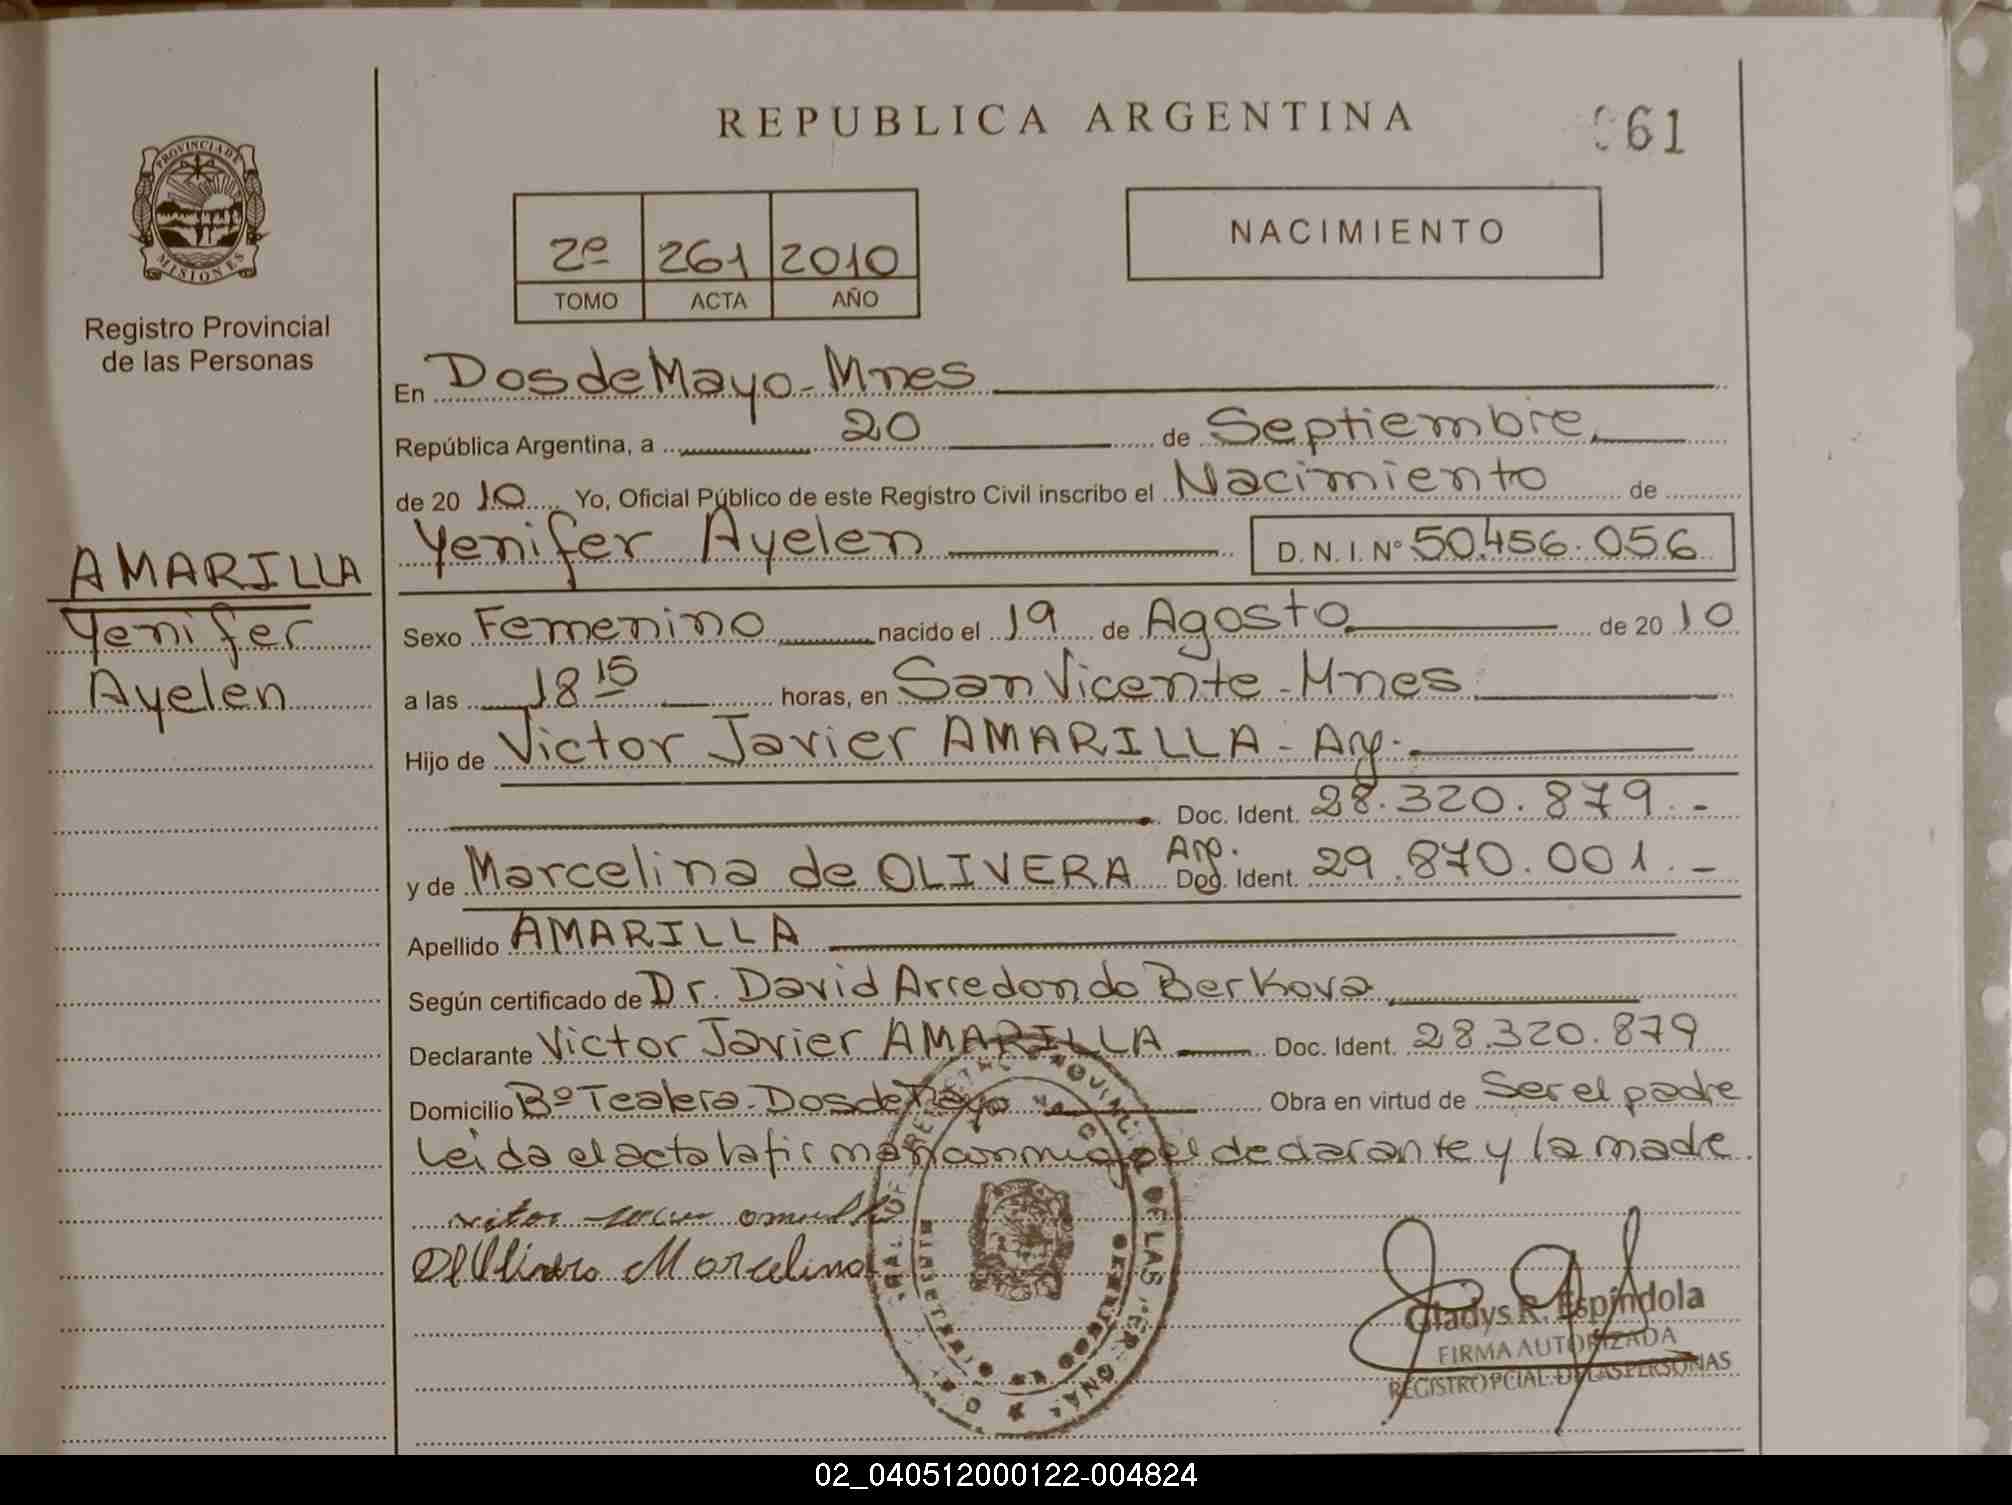 REPUBLICA ARGENTINA
61
PROVINCIA DE
MISIONES
Registro Provincial
de las Personas
2º 261 2010
TOMO ACTA AÑO
NACIMIENTO
En Dos de Mayo - Mnes
República Argentina, a 20 de Septiembre
de 20 10 Yo, Oficial Público de este Registro Civil inscribo el Nacimiento de
Yenifer Ayelen D.N.I. Nº 50.456.056
AMARILLA
Yenifer
Ayelen
Sexo Femenino nacido el 19 de Agosto de 20 10
a las 18 15 horas, en San Vicente - Mnes
Hijo de Victor Javier AMARILLA - Arg.
Doc. Ident. 28.320.879.-
y de Marcelina de OLIVERA Arg. Doc. Ident. 29.870.001.-
Apellido AMARILLA
Según certificado de Dr. David Arredondo Berkova
Declarante Victor Javier AMARILLA Doc. Ident. 28.320.879
Domicilio Bº Tealera - Dos de Mayo Obra en virtud de Ser el padre
Leida el acta la firman conmigo el declarante y la madre.
Marcelina
Gladys R. Espíndola
FIRMA AUTORIZADA
REGISTRO PCIAL. DE LAS PERSONAS
02_040512000122-004824